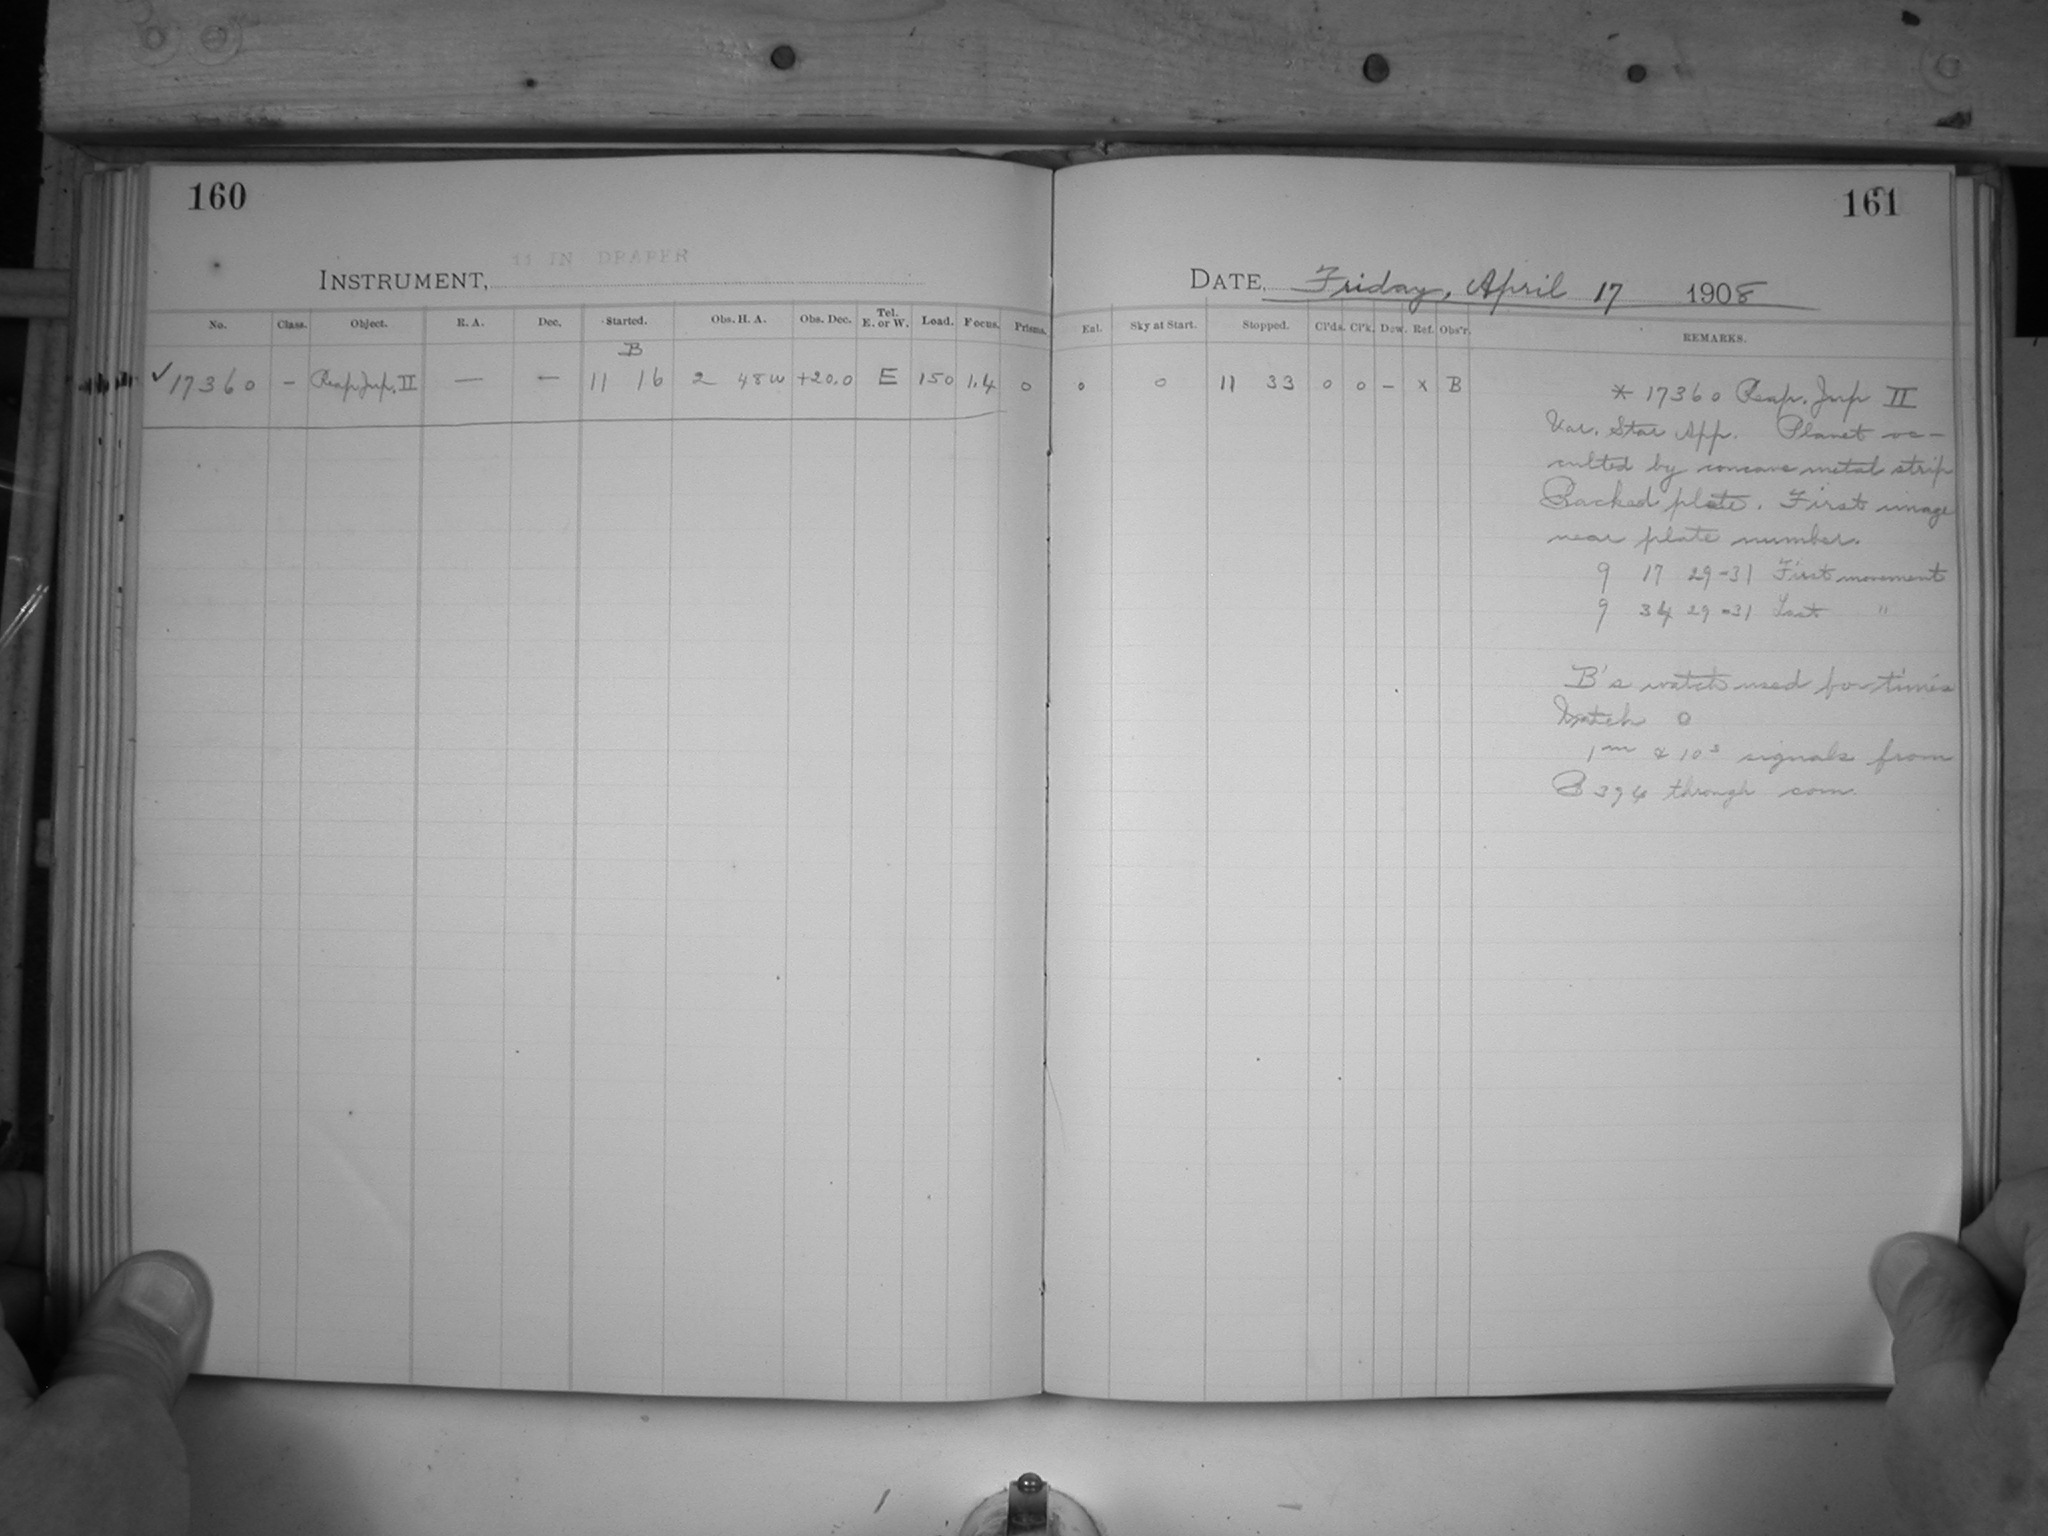 160
161
11 IN DRAPER
INSTRUMENT,
DATE, Friday, April 17 1908
No. Class. Object. R. A. Dec. Started. Obs. H. A. Obs. Dec. Tel. E. or W. Load. Focus. Prisms.
Eal. Sky at Start. Stopped. Cl'ds. Cl'k. Dew. Ref. Obs'r. REMARKS.
B
✓ 17360 – Reap. Jup. II — — 11 16 2 48 W +20.0 E 150 1.4 0
0 0 11 33 0 0 – x B
* 17360 Reap. Jup II
Var. Star App. Planet oc-
culted by concave metal strip
Backed plate. First image
near plate number.
9 17 29-31 First movement
9 34 29-31 Last "
B's watch used for times
Watch 0
1m & 10s signals from
B 394 through com.